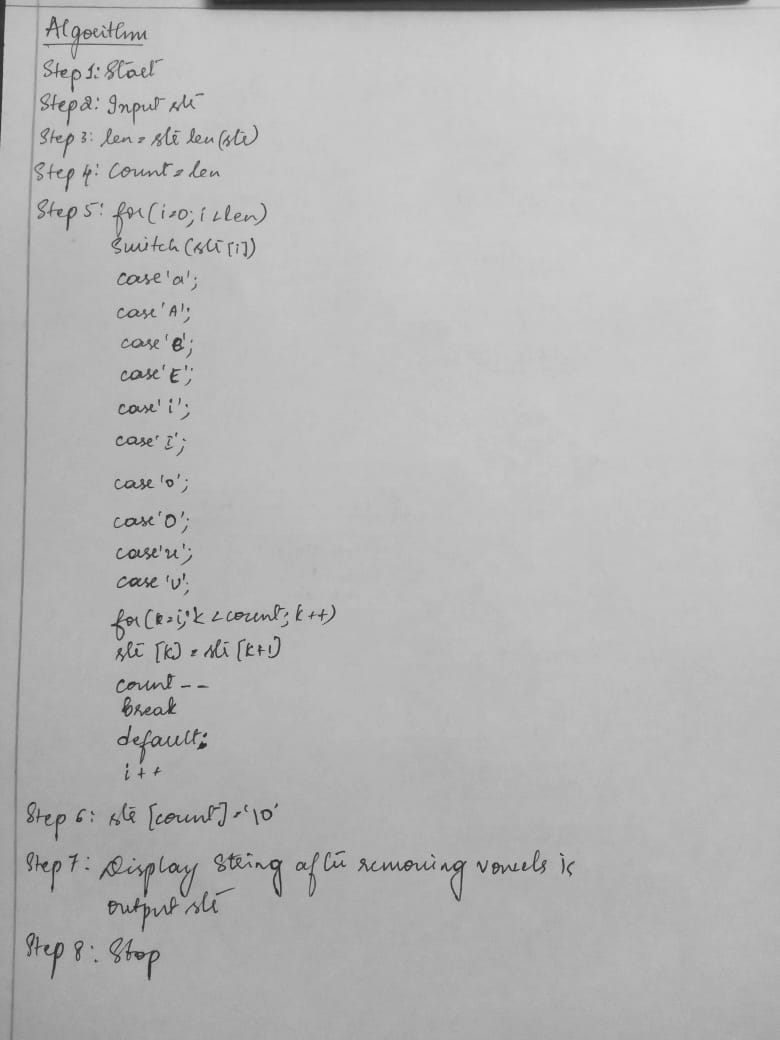 Algorithm
Step 1: Start
Step 2: Input str
Step 3: len = str len(str)
Step 4: Count = len
Step 5: for(i=0; i<len)
Switch(str[i])
case 'a';
case 'A';
case 'e';
case 'E';
case 'i';
case 'I';
case 'o';
case 'O';
case 'u';
case 'U';
for(k=i; k<count; k++)
str [k] = str [k+1]
count --
Break
default:
i++
Step 6: str [count] = '\0'
Step 7: Display String after removing vowels is
output str
Step 8: Stop